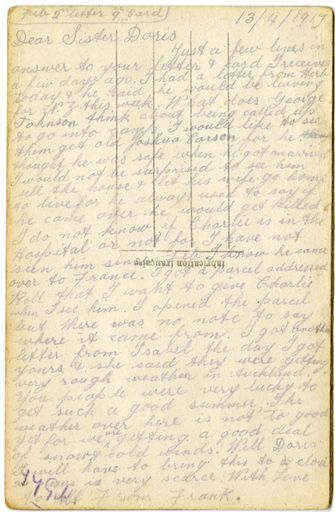 Feb 2nd letter & Card
13/4/1917
Dear Sister Doris
Just a few lines in
answer to your letter & card I receive
a few days ago. I had a letter from Herb
today & he said he would be leaving
for N.Z this week. What does George
Johnson think about being called up
to go into camp. I would like to see
them get old Joshua Carson for he
thought he was safe when he got married
I would not be surprised to see him
sell the house & let his wife go home
to live for he always used to say if
he came over he would get killed.
I do not know if Charlie is in the
Hospital or not for I have not
seen him since I know he came
over to France. I got a parcel addressed
Roll that I waht to give Charlie
when I see him. I opened the parcel
but there was no note to say
where it came from. I got another
letter from Isabel the day I got
yours & she said they were getting
very rough weather in Auckland.
You people were very lucky to
get such a good summer. The
weather over here is not to good
yet for we are getting a good deal
of snow & cold winds. Well Doris
I will have to bring this to a close
as news is very scarce. With Love
from Frank.
fabrication française